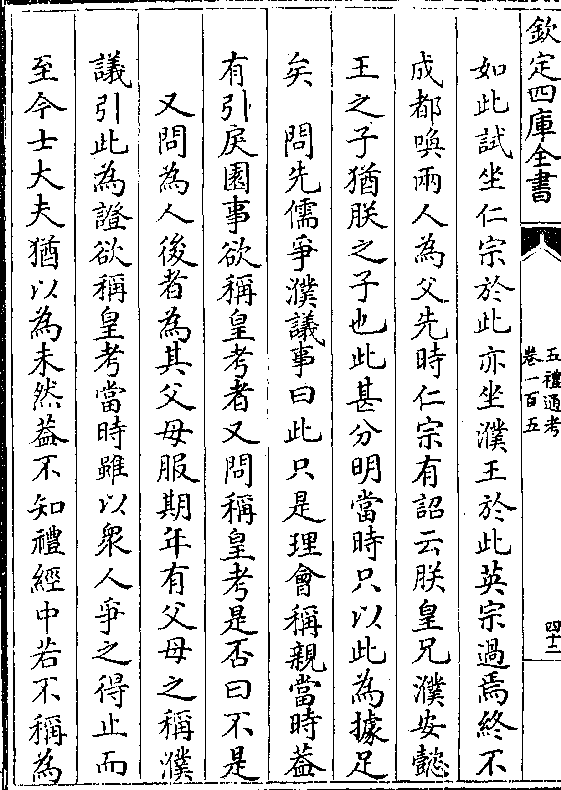 欽定四庫全書
五禮通考
卷一百五
四十三
如此試坐仁宗於此亦坐濮王於此英宗過焉終不
成都喚兩人為父先時仁宗有詔云朕皇兄濮安懿
王之子猶朕之子也此甚分明當時只以此為據足
矣　問先儒爭濮議事曰此只是理會稱親當時葢
有引戾園事欲稱皇考者又問稱皇考是否曰不是
又問為人後者為其父母服期年有父母之稱濮
議引此為證欲稱皇考當時雖以衆人爭之得止而
至今士大夫猶以為未然葢不知禮經中若不稱為